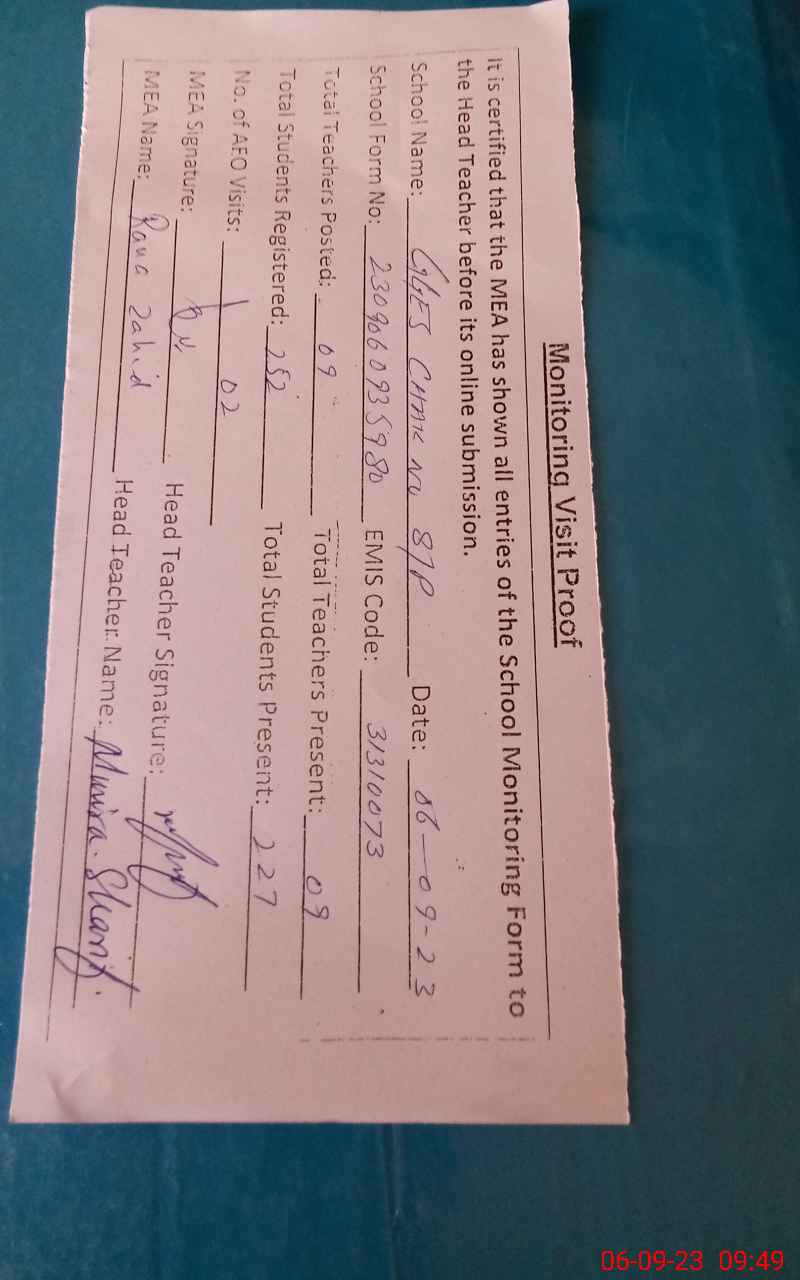 Monitoring Visit Proof
It is certified that the MEA has shown all entries of the School Monitoring Form to
the Head Teacher before its online submission.
School Name: GGES CHAK NO 87P Date: 06-09-23
School Form No: 2309060935980 EMIS Code: 31310073
Total Teachers Posted: 09 Total Teachers Present: 09
Total Students Registered: 252 Total Students Present: 227
No. of AEO Visits: 02
MEA Signature: Head Teacher Signature:
MEA Name: Rana Zahid Head Teacher Name: Munira Sharif.
06-09-23 09:49